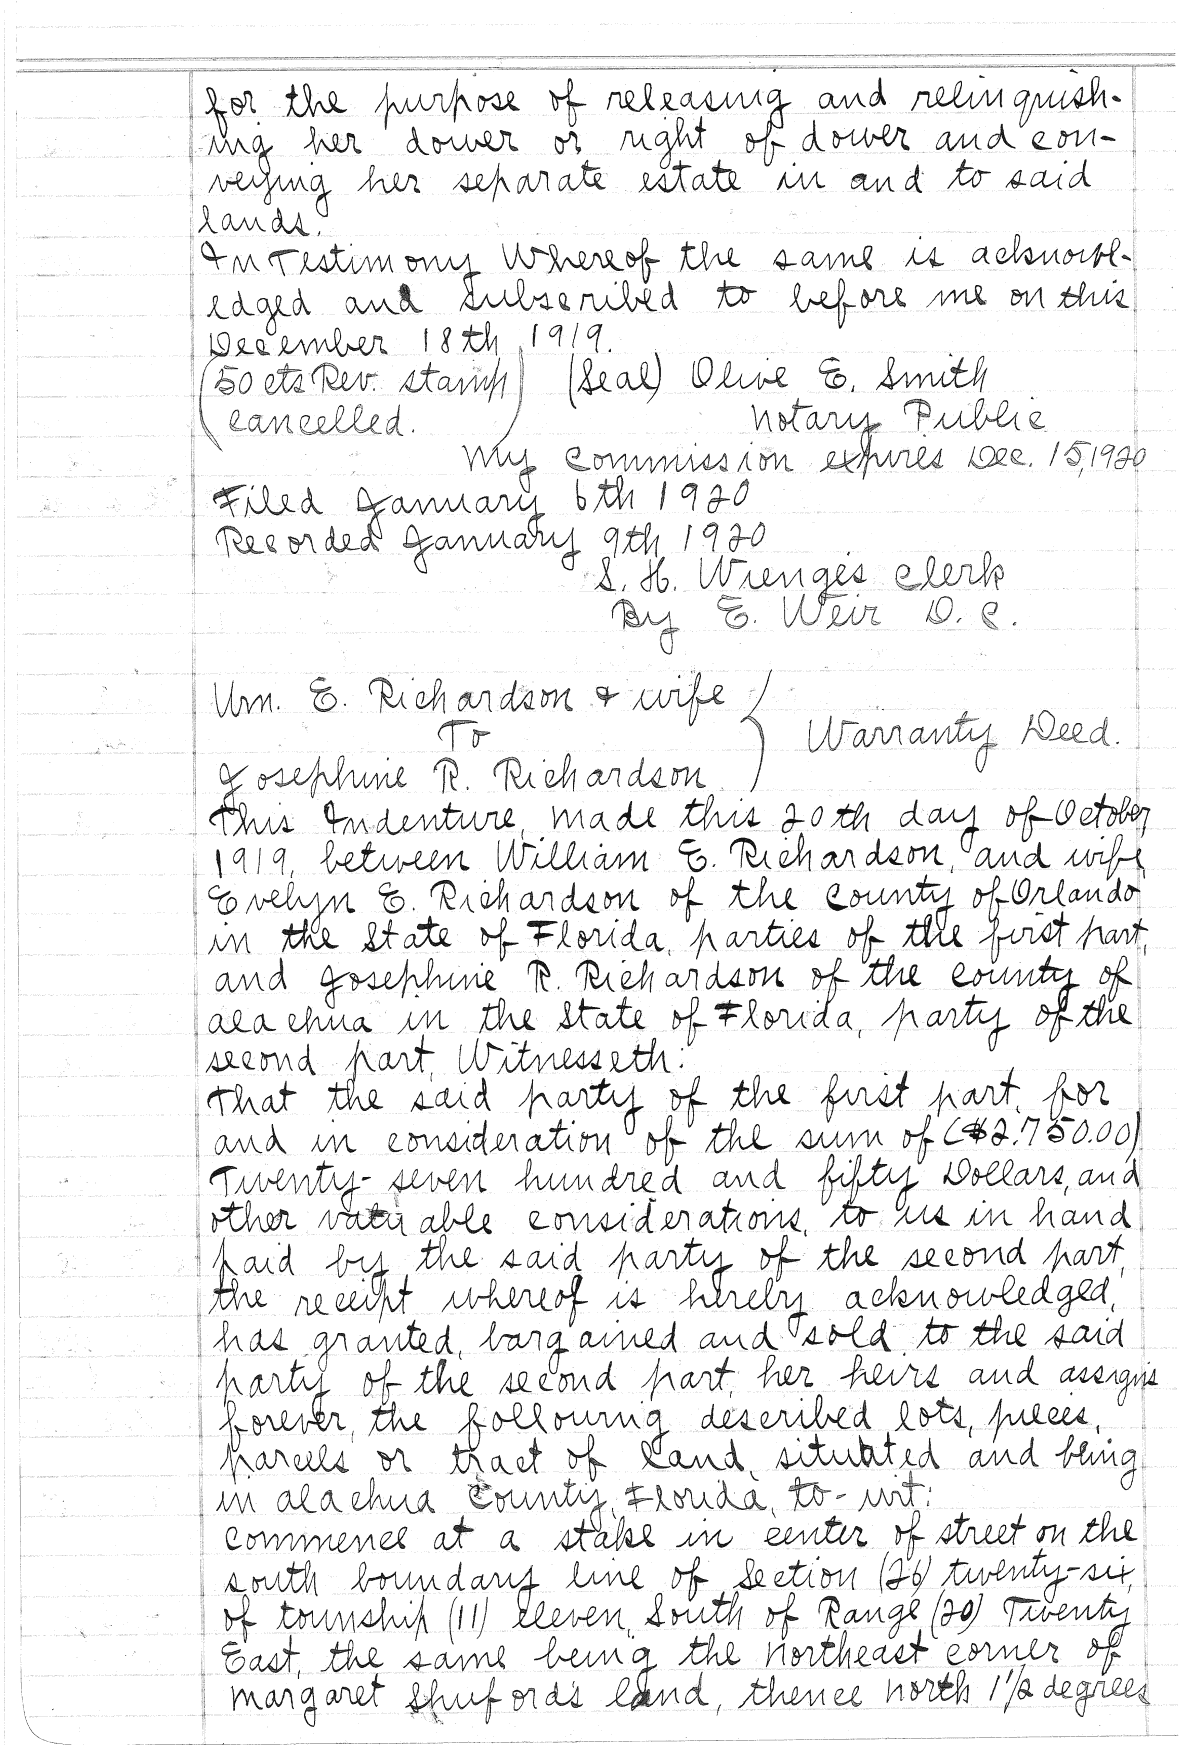 for the purpose of releasing and relinquish-
ing her dower or right of dower and con-
veying her separate estate in and to said
lands.
In Testimony Whereof the same is acknowl-
edged and subscribed to before me on this
December 18th, 1919.
(50 cts Rev. stamp) (Seal) Olive E. Smith
cancelled. Notary Public
My commission expires Dec. 15, 1920
Filed January 6th 1920
Recorded January 9th 1920
S. H. Wienges Clerk
By E. Weir D. C.
Wm. E. Richardson & wife
To
Warranty Deed.
Josephine R. Richardson
This Indenture, made this 20th day of October
1919, between William E. Richardson, and wife
Evelyn E. Richardson of the County of Orlando
in the State of Florida, parties of the first part,
and Josephine R. Richardson of the county of
Alachua in the State of Florida, party of the
second part, Witnesseth:
That the said party of the first part, for
and in consideration of the sum of ($2.750.00)
Twenty-seven hundred and fifty Dollars, and
other valuable considerations, to us in hand
paid by the said party of the second part,
the receipt whereof is hereby acknowledged,
has granted, bargained and sold to the said
party of the second part, her heirs and assigns
forever, the following described lots, pieces,
parcels or tract of land, situated and being
in Alachua County, Florida, to-wit:
Commence at a stake in center of street on the
south boundary line of Section (26) twenty-six,
of township (11) eleven, South of Range (20) Twenty
East, the same being the Northeast corner of
Margaret Shuford's land, thence north 1 1/2 degrees